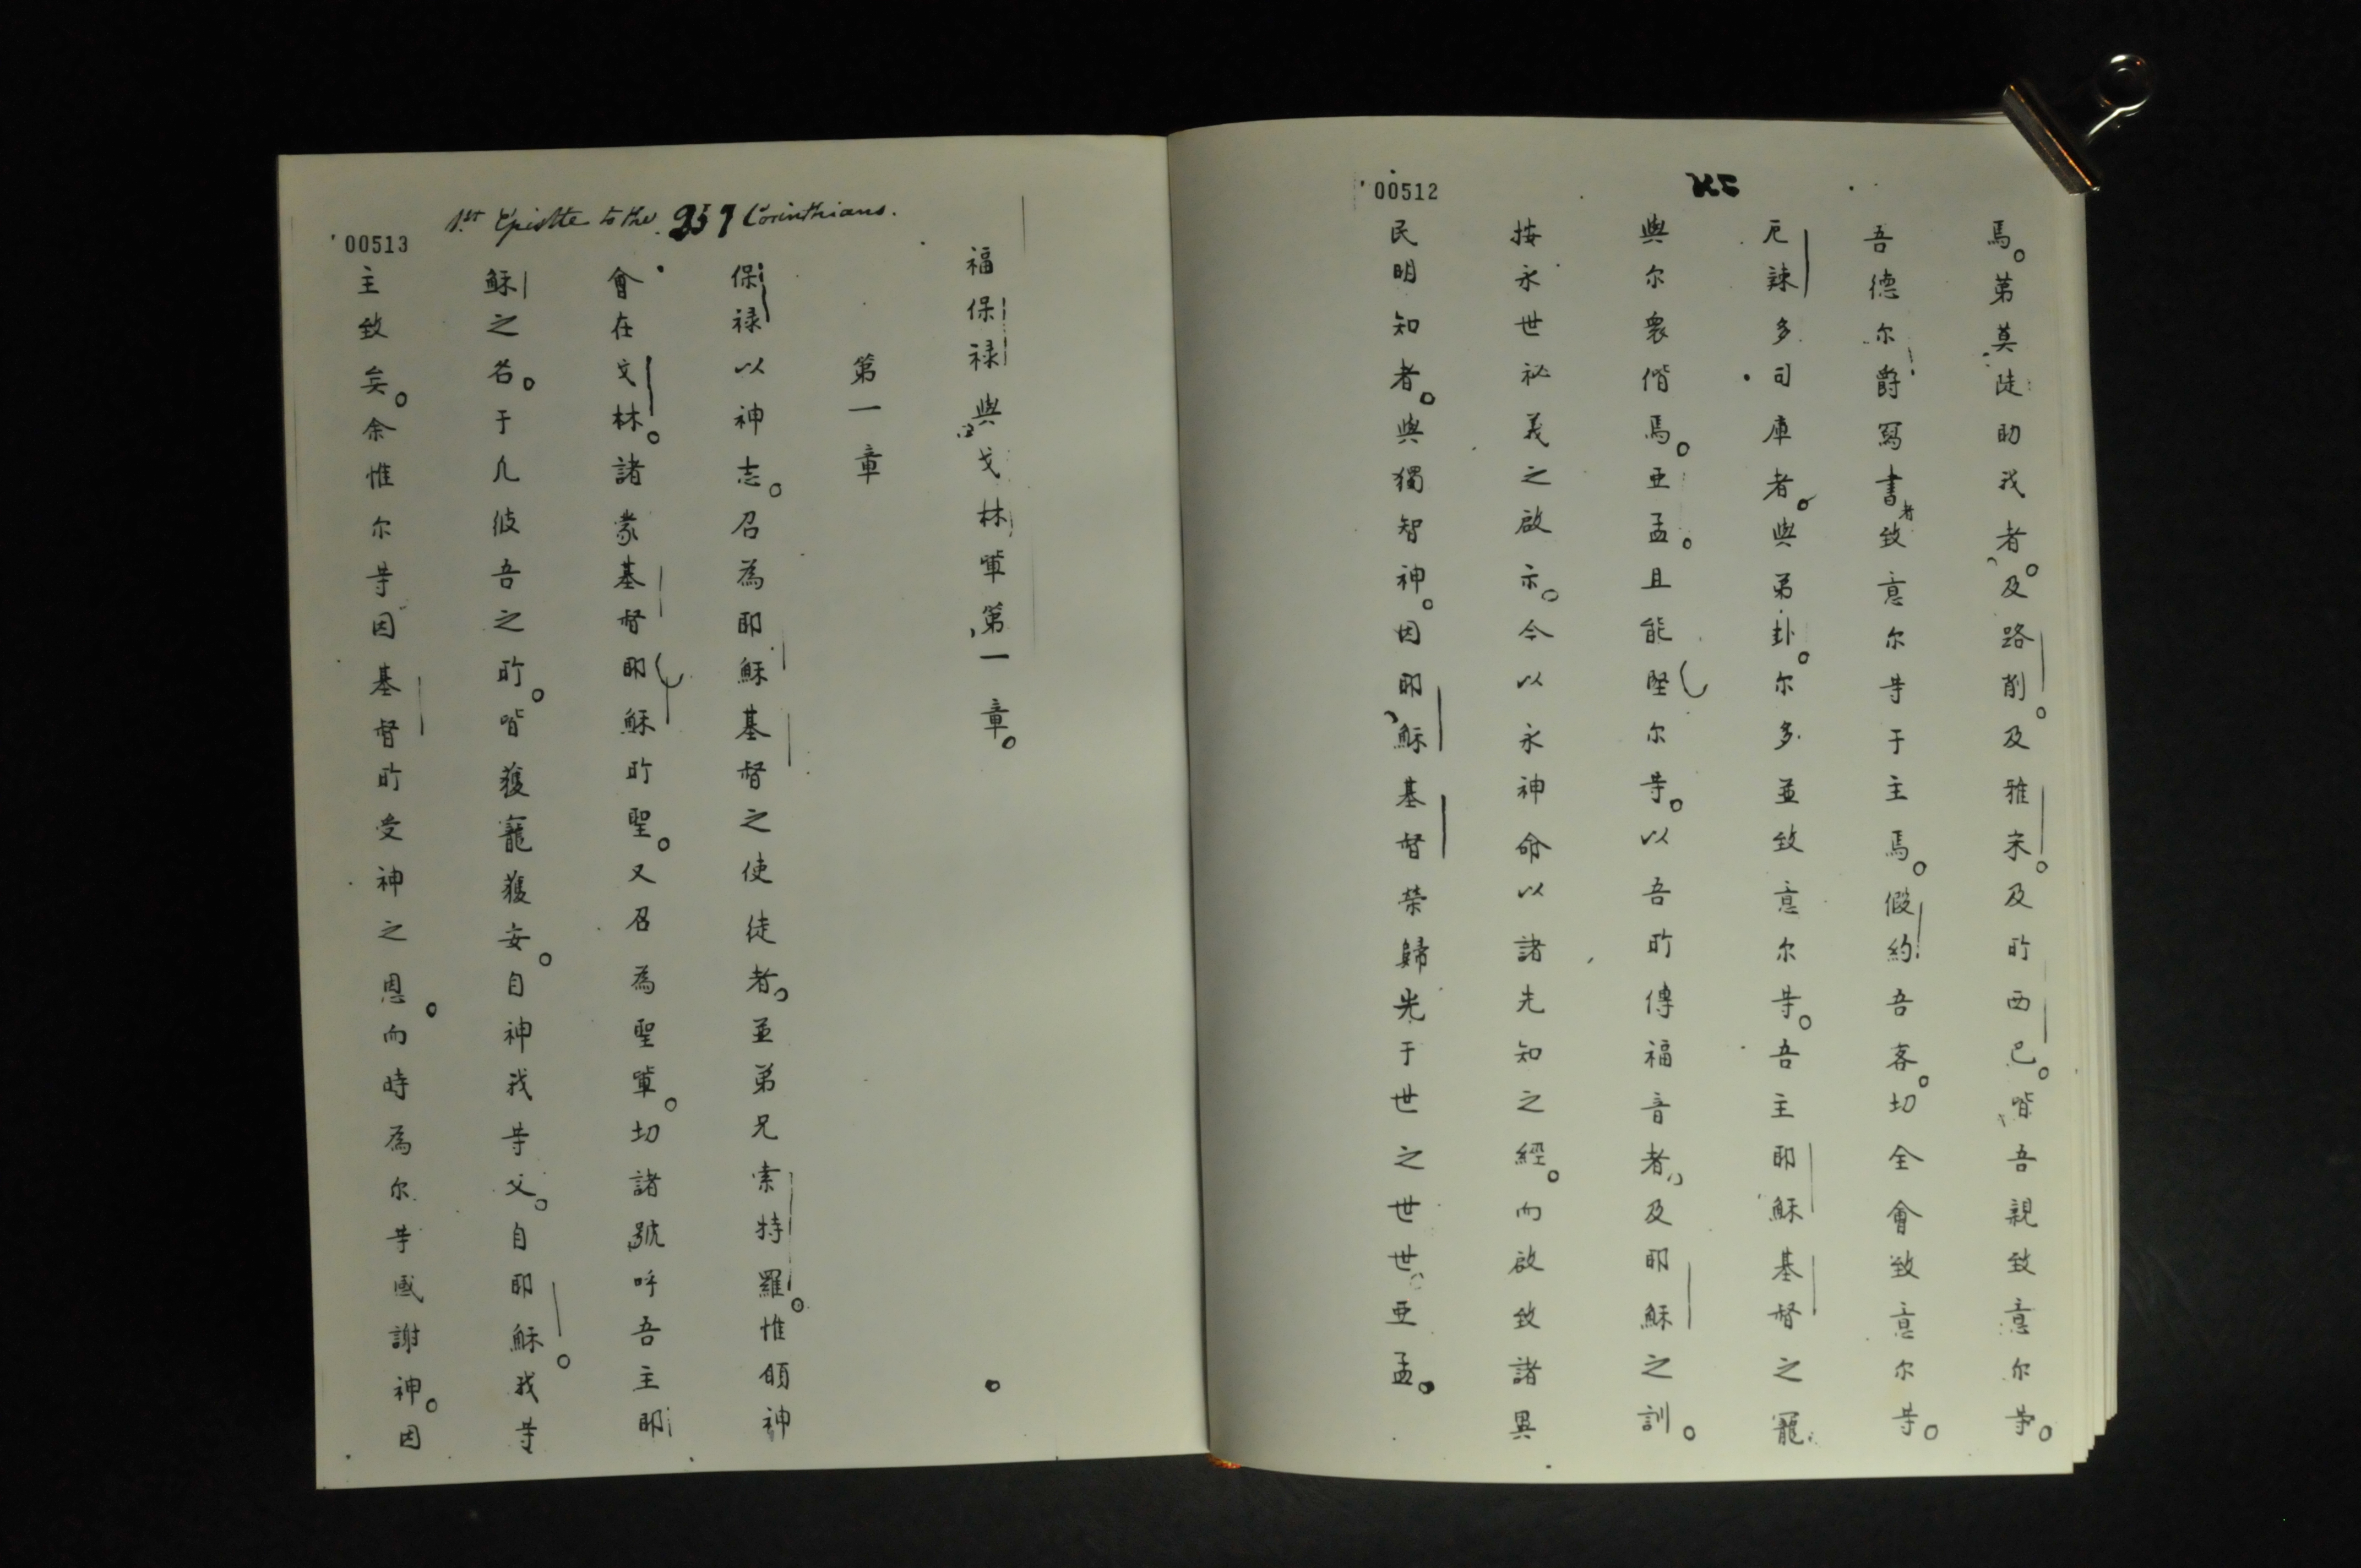 00512
馬。第莫陡助我者。及路削。及雅宋。及所西巴。皆吾親致意尔等。
吾德尔爵寫書者致意尔等于主焉。假約吾客。切全會致意尔等。
厄辣多司庫者。與弟卦。尔多並致意尔等。吾主耶穌基督之寵
與尔衆偕焉。亚孟。且能堅尔等。以吾所傳福音者。及耶穌之訓。
按永世祕義之啟示。今以永神命以諸先知之經。而啟致諸異
民明知者。與獨智神。因耶穌基督榮歸光于世之世世。亚孟。
00513
1st Epistle to the Corinthians.
福保禄與戈林軰第一章。
第一章
保禄以神志。召為耶穌基督之使徒者。並弟兄索特羅。惟頋神
會在戈林。諸蒙基督耶穌所聖。又召為聖軰。切諸號呼吾主耶
穌之名。于凡彼吾之所。皆獲寵獲安。自神我等父。自耶穌。我等
主致矣。余惟尔等因基督所受神之恩。而時為尔等感謝神。因